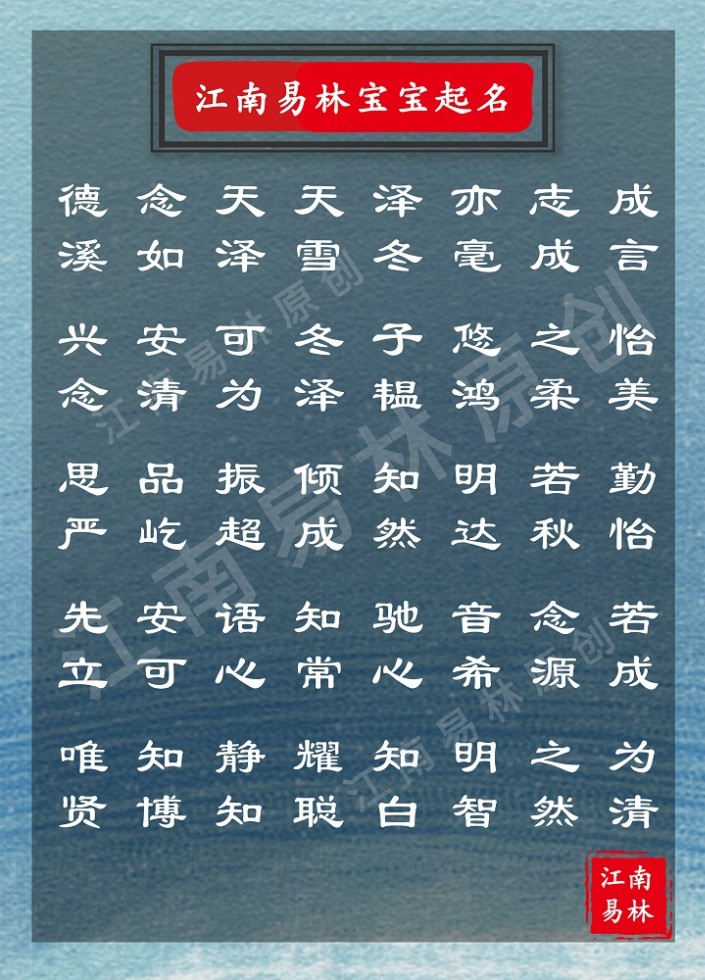 江南易林宝宝起名
德 念 天 天 泽 亦 志 成
溪 如 泽 雪 冬 毫 成 言
兴 安 可 冬 子 悠 之 怡
念 清 为 泽 韫 鸿 柔 美
思 品 振 倾 知 明 若 勤
严 屹 超 成 然 达 秋 怡
先 安 语 知 驰 音 念 若
立 可 心 常 心 希 源 成
唯 知 静 耀 知 明 之 为
贤 博 知 聪 白 智 然 清
江南易林原创
江南易林原创
江南易林原创
江南
易林